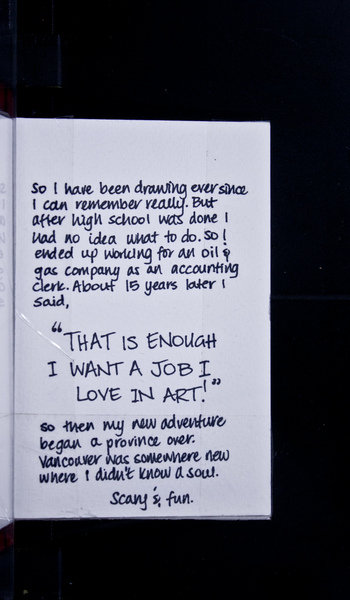 So I have been drawing ever since
I can remember really. But
after high school was done I
had no idea what to do. So I
ended up working for an oil &
gas company as an accounting
clerk. About 15 years later I
said,
"THAT IS ENOUGH
I WANT A JOB I
LOVE IN ART!"
So then my new adventure
began a province over.
Vancouver was somewhere new
where I didn't know a soul.
Scary & fun.